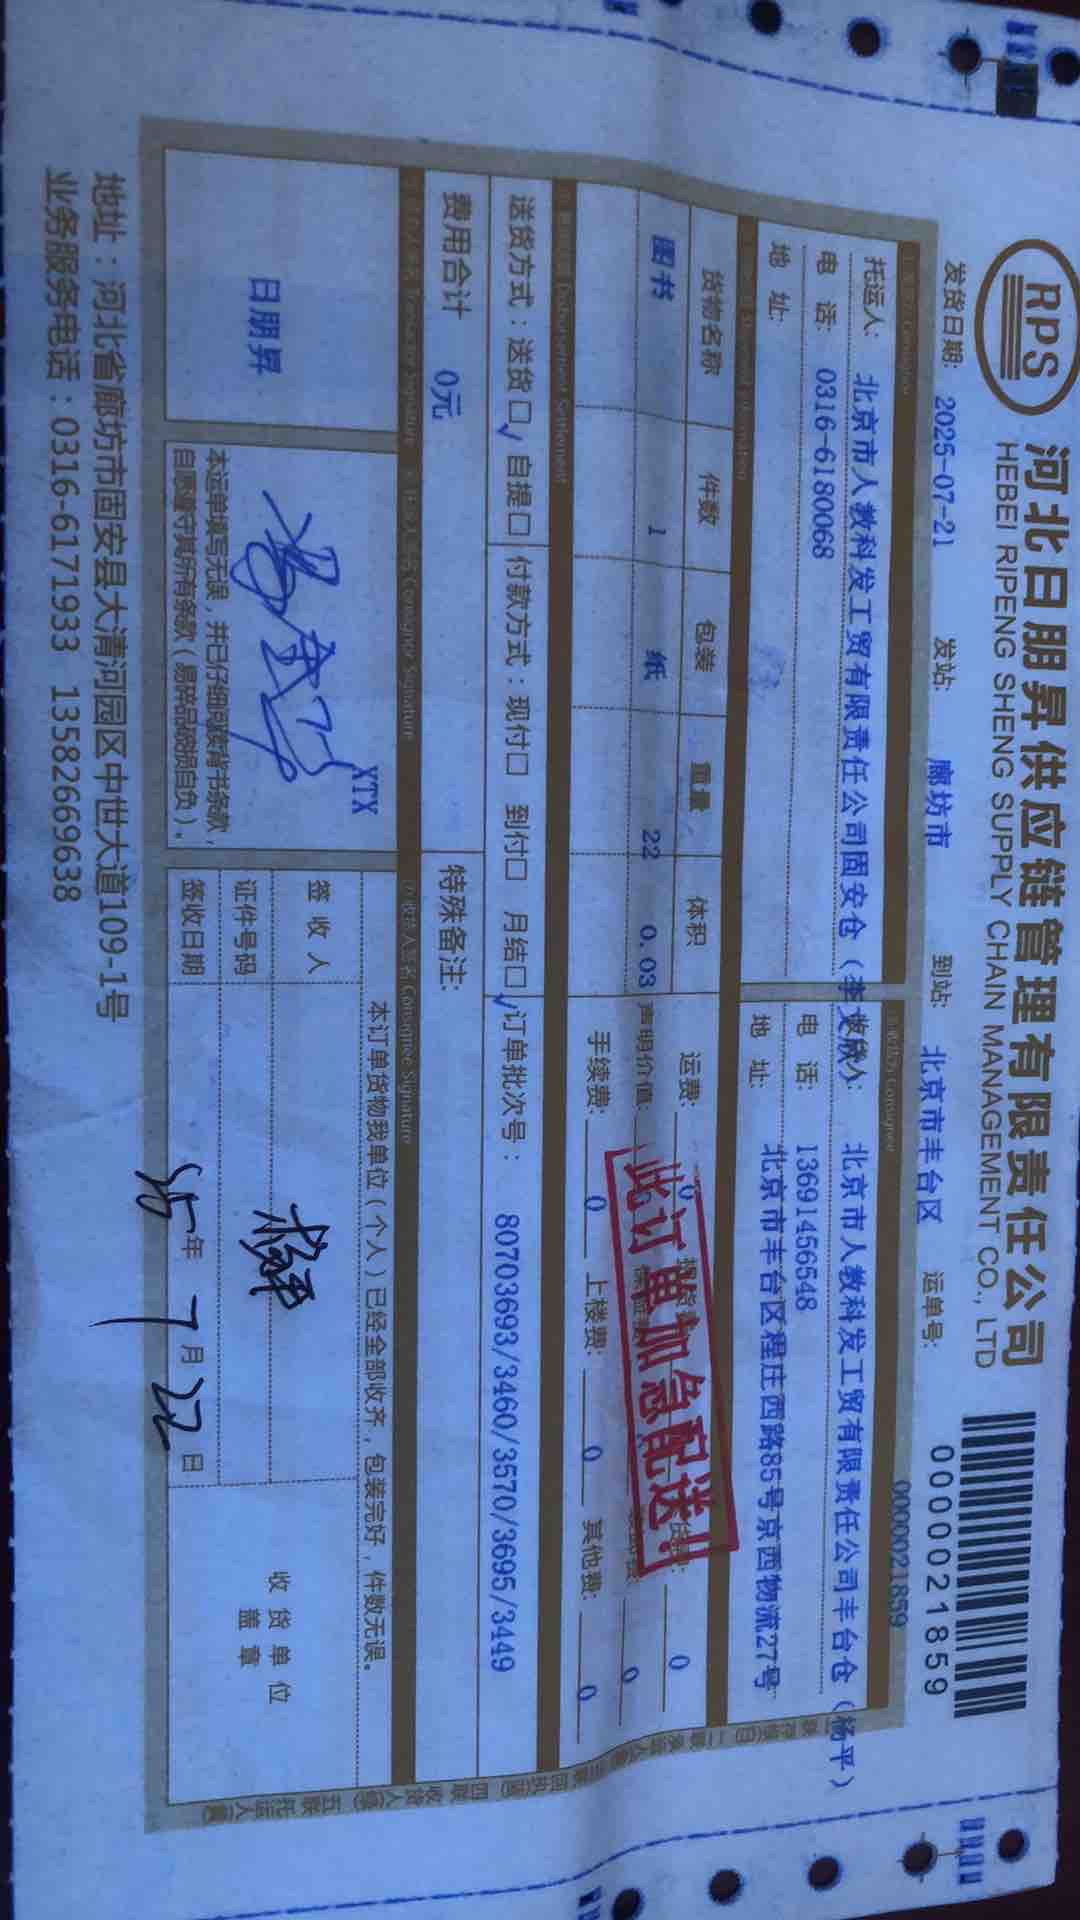 RPS
河北日朋昇供应链管理有限责任公司
HEBEI RIPENG SHENG SUPPLY CHAIN MANAGEMENT CO., LTD
000021859
发货日期: 2025-07-21 发站: 廊坊市 到站: 北京市丰台区 运单号:
000021859
托运人: 北京市人教科发工贸有限责任公司固安仓（李文欣）
电 话: 0316-6180068
地 址:
北京市人教科发工贸有限责任公司丰台仓（杨平）
电 话: 13691456548
地 址: 北京市丰台区程庄西路85号京西物流27号
货物名称 件数 包装 重量 体积
图书 1 纸 22 0.03
运费: 0 0
声明价值: 0
手续费: 0 上楼费: 0 其他费: 0
此订单加急配送!
送货方式：送货☐✓ 自提☐ 付款方式：现付☐ 到付☐ 月结☐✓ 订单批次号： 80703693/3460/3570/3695/3449
费用合计 0元
特殊备注:
日朋昇
XTX
本运单填写无误，并已仔细阅读背书条款，
自愿遵守其所有条款（易碎品破损自负）。
本订单货物我单位（个人）已经全部收齐，包装完好，件数无误。
签 收 人 杨平
证件号码
签收日期 年 7月22日
收货单位
盖 章
地址：河北省廊坊市固安县大清河园区中世大道109-1号
业务服务电话：0316-6171933 13582669638